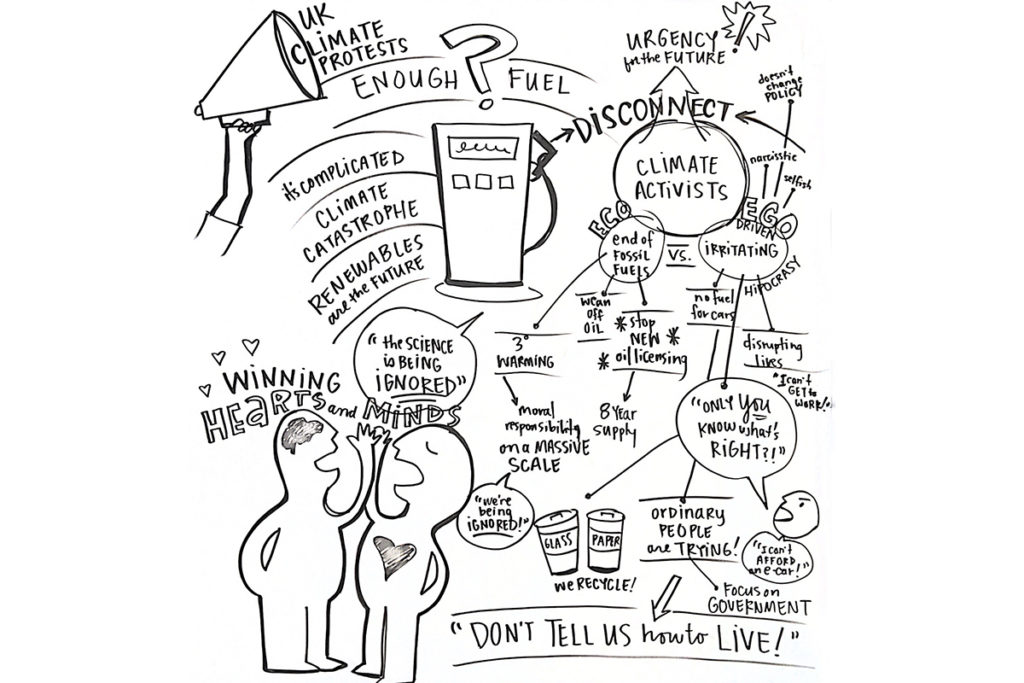 UK
CLIMATE
PROTESTS
ENOUGH ? FUEL
it's COMPLICATED
CLIMATE
CATASTROPHE
RENEWABLES
are the FUTURE
URGENCY !
for the FUTURE
DISCONNECT
CLIMATE
ACTIVISTS
doesn't
change
POLICY
narcisstic
selfish
ECO
end of
FOSSIL
FUELS
VS.
EGO
DRIVEN
iRRiTATING
HiPOCRASY
"the SCIENCE
is BEING
iGNORED"
3°
WARMING
moral
responsibility
on a MASSIVE
SCALE
"we're
being
iGNORED!"
WEAN
OFF
OiL
* STOP
NEW *
* oil licensing
8 YEAR
SUPPLY
no fuel
for cars
disrupting
LIVES
"I can't
GET to
WORK!"
"ONLY YOU
KNOW what's
RIGHT?!"
WINNING
HEARTS and MINDS
GLASS
PAPER
we RECYCLE!
ORDINARY
PEOPLE
are TRYING!
"I can't
AFFORD
an e-car!"
FOCUS on
GOVERNMENT
"DON'T TELL US how to LIVE!"